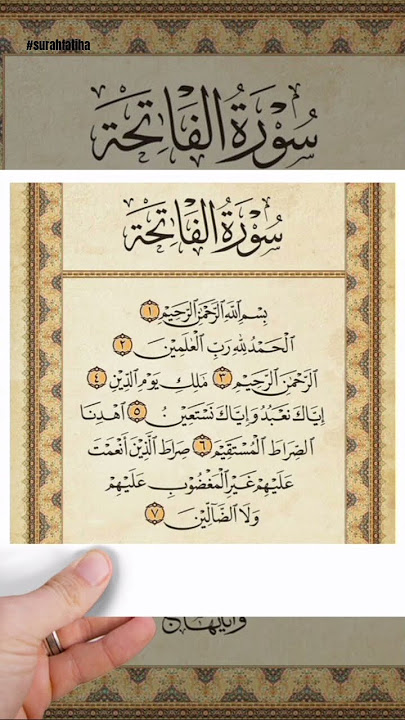 #surahfatiha
سُوْرَةُ الْفَاتِحَةِ
سُوْرَةُ الْفَاتِحَةِ
بِسْمِ اللّٰهِ الرَّحْمٰنِ الرَّحِيْمِ ١
اَلْحَمْدُ لِلّٰهِ رَبِّ الْعٰلَمِيْنَ ٢
الرَّحْمٰنِ الرَّحِيْمِ ٣ مٰلِكِ يَوْمِ الدِّيْنِ ٤
اِيَّاكَ نَعْبُدُ وَاِيَّاكَ نَسْتَعِيْنُ ٥ اِهْدِنَا
الصِّرَاطَ الْمُسْتَقِيْمَ ٦ صِرَاطَ الَّذِيْنَ اَنْعَمْتَ
عَلَيْهِمْ غَيْرِ الْمَغْضُوْبِ عَلَيْهِمْ
وَلَا الضَّآلِّيْنَ ٧